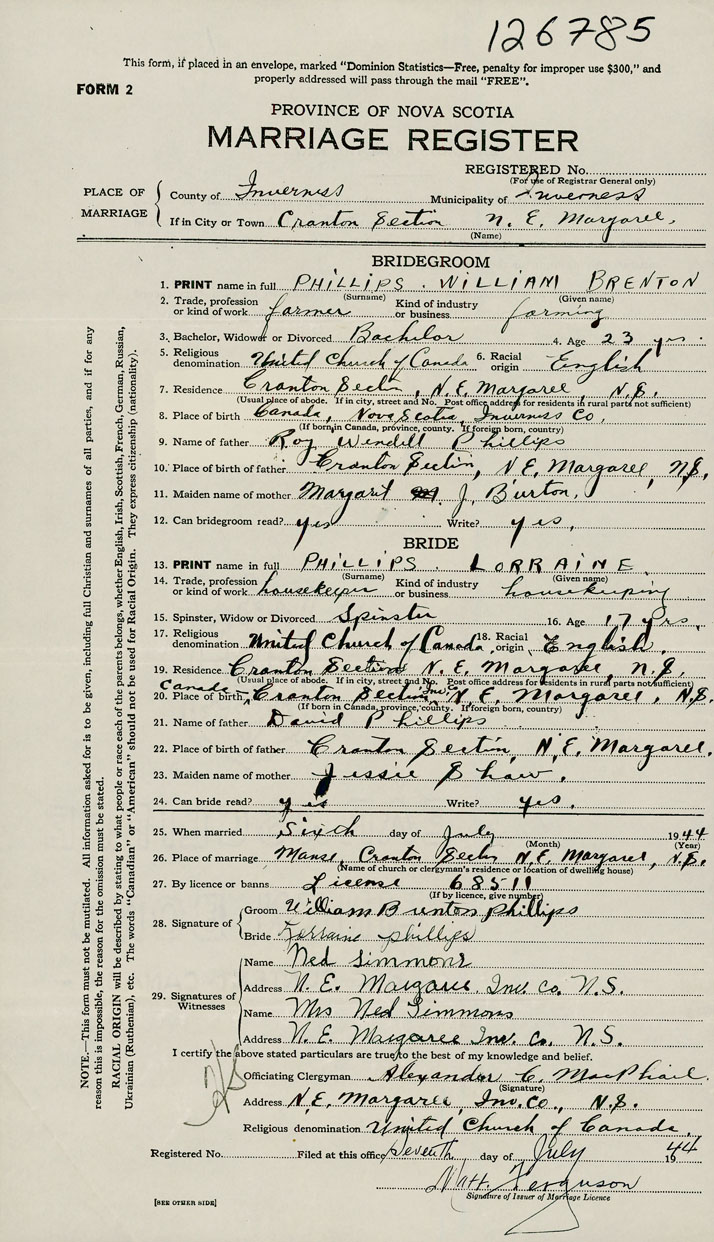 126785
This form, if placed in an envelope, marked "Dominion Statistics—Free, penalty for improper use $300," and
properly addressed will pass through the mail "FREE".
FORM 2
PROVINCE OF NOVA SCOTIA
MARRIAGE REGISTER
REGISTERED No.
(For use of Registrar General only)
PLACE OF MARRIAGE
County of Inverness Municipality of Inverness
If in City or Town Cranton Section N. E. Margaree,
(Name)
BRIDEGROOM
1. PRINT name in full PHILLIPS. WILLIAM BRENTON
(Surname) (Given name)
2. Trade, profession or kind of work farmer Kind of industry or business farming
3. Bachelor, Widower or Divorced Bachelor 4. Age 23 yrs.
5. Religious denomination United Church of Canada 6. Racial origin English
7. Residence Cranton Sectn, N.E. Margaree, N.S.
(Usual place of abode. If in city, street and No. Post office address for residents in rural parts not sufficient)
8. Place of birth Canada, Nova Scotia, Inverness Co,
(If born in Canada, province, county. If foreign born, country)
9. Name of father Roy Wendell Phillips
10. Place of birth of father Cranton Section, N.E. Margaree, N.S.
11. Maiden name of mother Margaret J. Burton,
12. Can bridegroom read? yes Write? yes,
BRIDE
13. PRINT name in full PHILLIPS. LORRAINE.
(Surname) (Given name)
14. Trade, profession or kind of work housekeeper Kind of industry or business housekeeping
15. Spinster, Widow or Divorced Spinster 16. Age 17 yrs.
17. Religious denomination United Church of Canada 18. Racial origin English.
19. Residence Cranton Section N. E. Margaree, N.S.
(Usual place of abode. If in city, street and No. Post office address for residents in rural parts not sufficient)
20. Place of birth Canada, Cranton Section, Inv. Co. N. E. Margaree, N.S.
(If born in Canada, province, county. If foreign born, country)
21. Name of father David Phillips
22. Place of birth of father Cranton Section, N.E. Margaree.
23. Maiden name of mother Jessie Shaw.
24. Can bride read? yes Write? yes.
25. When married Sixth day of July 1944
(Month) (Year)
26. Place of marriage Manse, Cranton Sectn N.E. Margaree, N.S.
(Name of church or clergyman's residence or location of dwelling house)
27. By licence or banns License 68511
(If by licence, give number)
28. Signature of
Groom William Brenton Phillips
Bride Lorraine Phillips
29. Signatures of Witnesses
Name Ned Simmons
Address N. E. Margaree Inv. Co. N.S.
Name Mrs Ned Simmons
Address N. E. Margaree Inv. Co. N.S.
I certify the above stated particulars are true to the best of my knowledge and belief.
Officiating Clergyman Alexander C. MacPhail.
(Signature)
Address N.E. Margaree, Inv. Co., N.S.
Religious denomination United Church of Canada.
Registered No. Filed at this office Seventh day of July 1944
Ferguson
Signature of Issuer of Marriage Licence
[SEE OTHER SIDE]
NOTE.—This form must not be mutilated. All information asked for is to be given, including full Christian and surnames of all parties, and if for any
reason this is impossible, the reason for the omission must be stated.
RACIAL ORIGIN will be described by stating to what people or race each of the parents belongs, whether English, Irish, Scottish, French, German, Russian,
Ukrainian (Ruthenian), etc. The words "Canadian" or "American" should not be used for Racial Origin. They express citizenship (nationality).